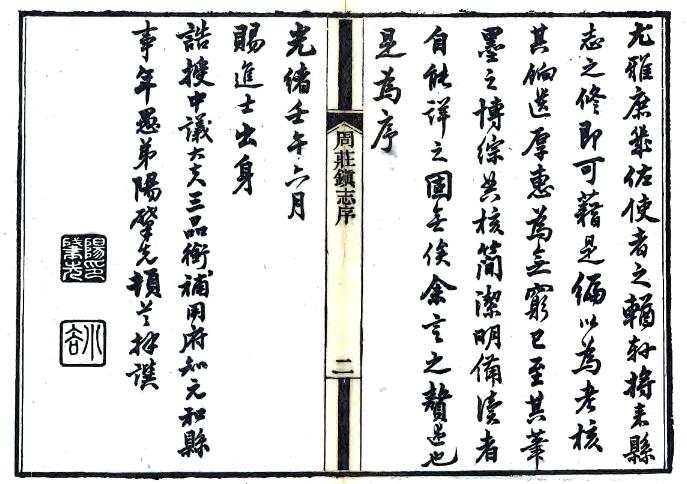 尤雅庶幾佐使者之輶軒將來縣
志之修即可藉是編以為考核
其餉遺厚惠為無窮已至其筆
墨之博綜典核簡潔明備讀者
自能詳之固無俟余言之贅述也
是為序
周莊鎮志序
二
光緒壬午六月
賜進士出身
誥授中議大夫三品銜補用府知元和縣
事年愚弟陽肇先頓首拜譔
陽印
肇先